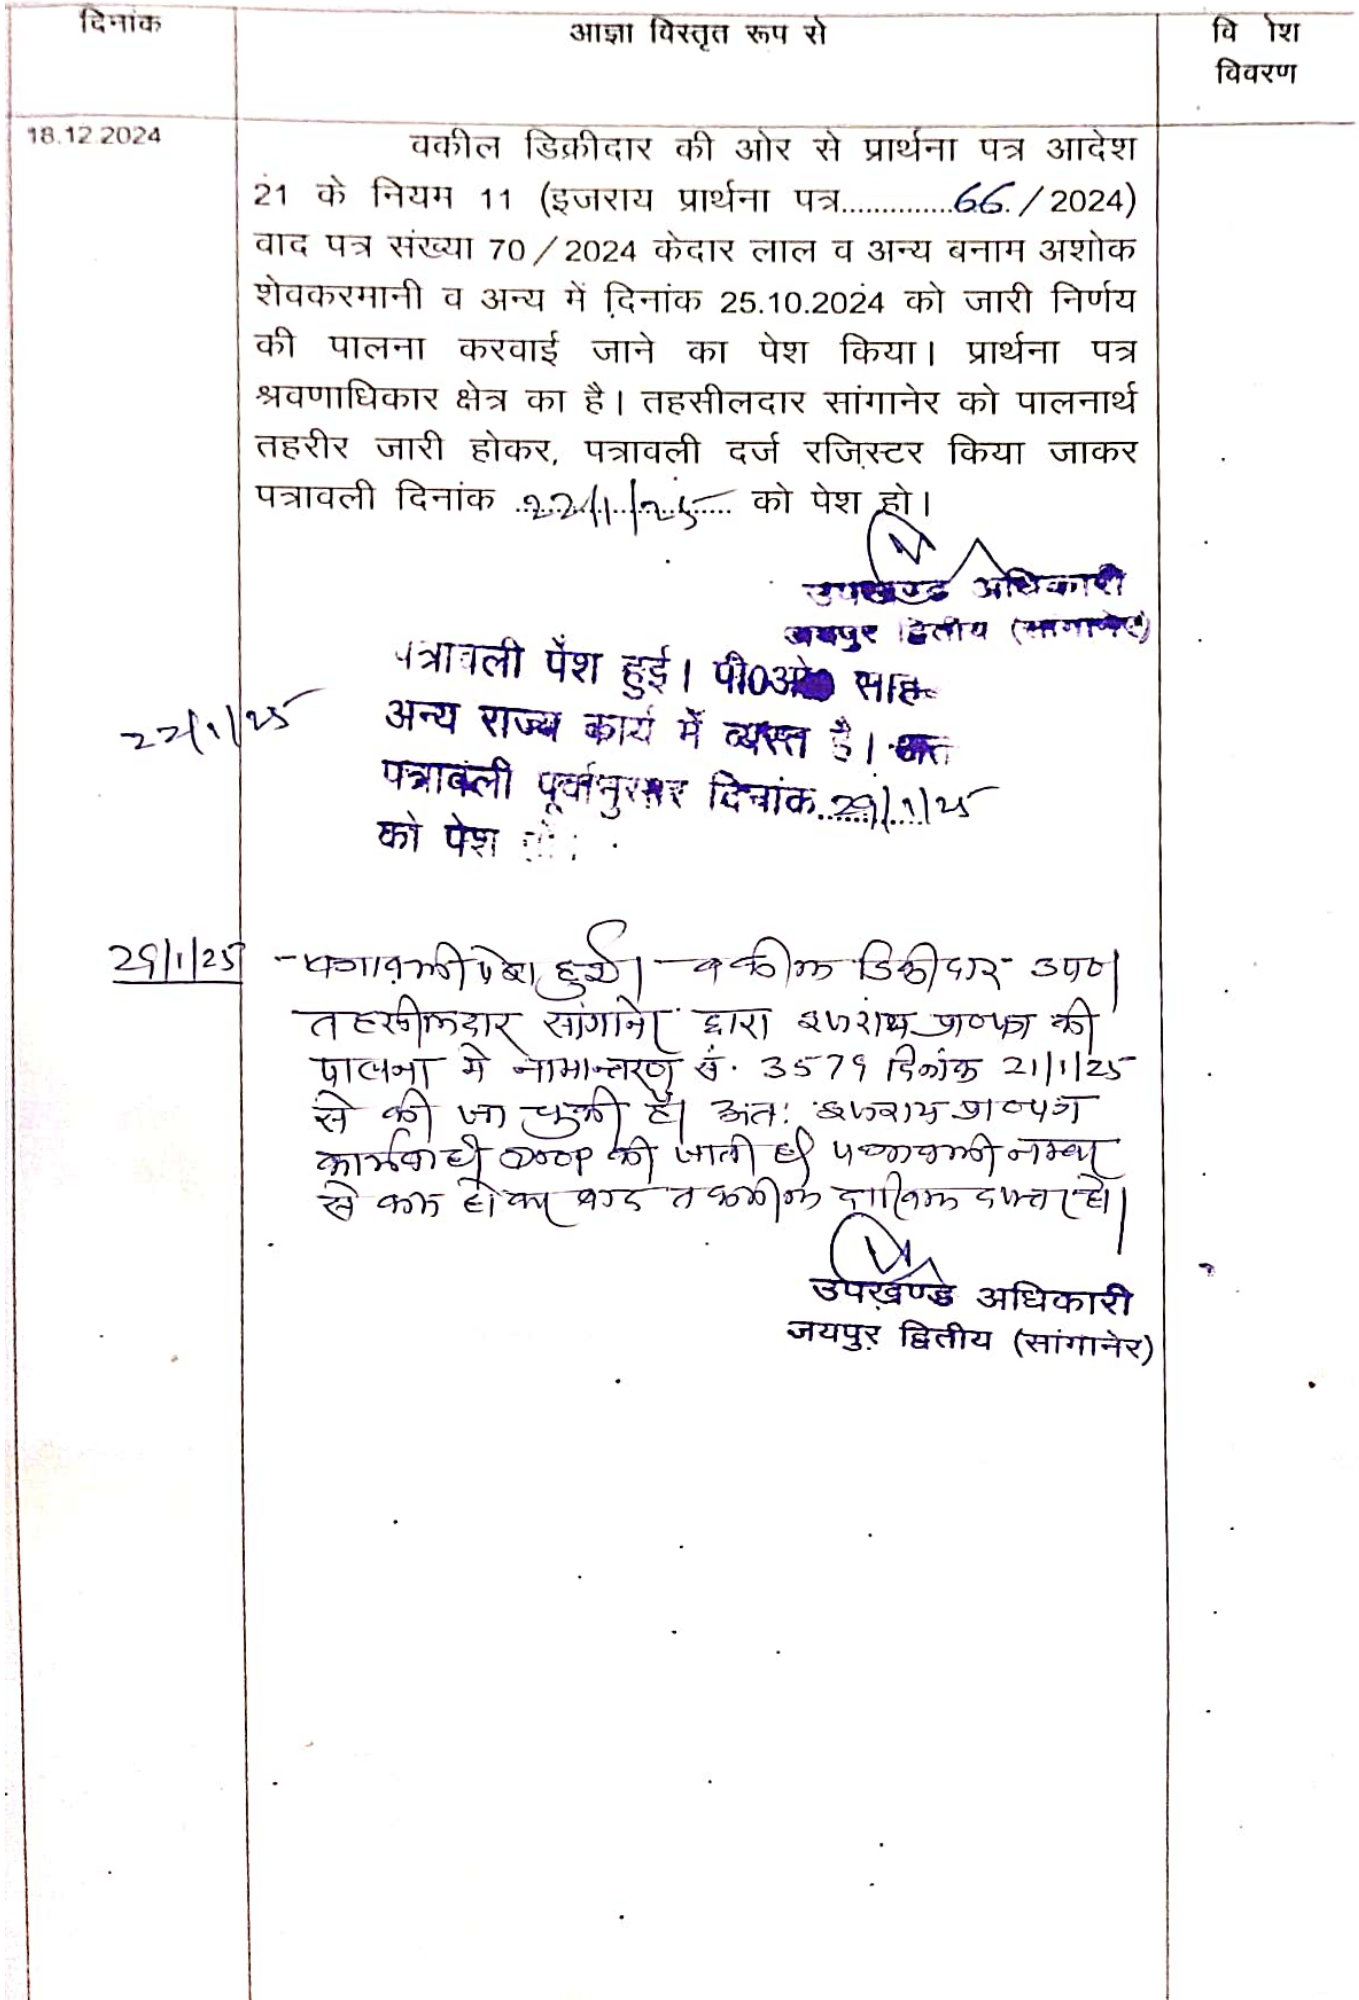 दिनांक
आज्ञा विस्तृत रूप से
वि ोश
विवरण
18.12.2024
वकील डिक्रीदार की ओर से प्रार्थना पत्र आदेश
21 के नियम 11 (इजराय प्रार्थना पत्र..............66./2024)
वाद पत्र संख्या 70/2024 केदार लाल व अन्य बनाम अशोक
शेवकरमानी व अन्य में दिनांक 25.10.2024 को जारी निर्णय
की पालना करवाई जाने का पेश किया। प्रार्थना पत्र
श्रवणाधिकार क्षेत्र का है। तहसीलदार सांगानेर को पालनार्थ
तहरीर जारी होकर, पत्रावली दर्ज रजिस्टर किया जाकर
पत्रावली दिनांक ..22/1/25.. को पेश हो।
उपखण्ड अधिकारी
जयपुर द्वितीय (सांगानेर)
पत्रावली पेश हुई। पी0ओ0 साह
22/1/25
अन्य राज्य कार्य में व्यस्त है। अत
पत्रावली पूर्वानुसार दिनांक..29/1/25
को पेश
29/1/25
पत्रावली पेश हुई। वकील डिक्रीदार उप०।
तहसीलदार सांगानेर द्वारा इजराय प्रा०पत्र की
पालना मे नामान्तरण सं. 3579 दिनांक 21/1/25
से की जा चुकी है। अतः इजराय प्रा०पत्र
कार्यवाही ड्राप की जाती है। पत्रावली नम्बर
से कम होकर बाद तकमील दाखिल दफ्तर हो।
उपखण्ड अधिकारी
जयपुर द्वितीय (सांगानेर)